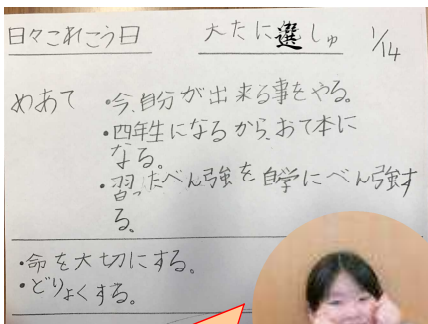 日々これこう日　大たに選しゅ　1/14
めあて　・今、自分が出来る事をやる。
・四年生になるから、おて本に
なる。
・習ったべん強を自学にべん強す
る。
・命を大切にする。
・どりょくする。